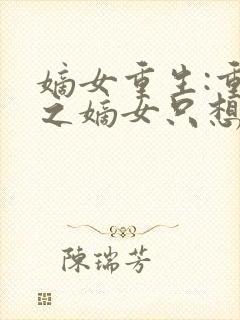 嫡女重生:重
之嫡女只想
陳瑞芳